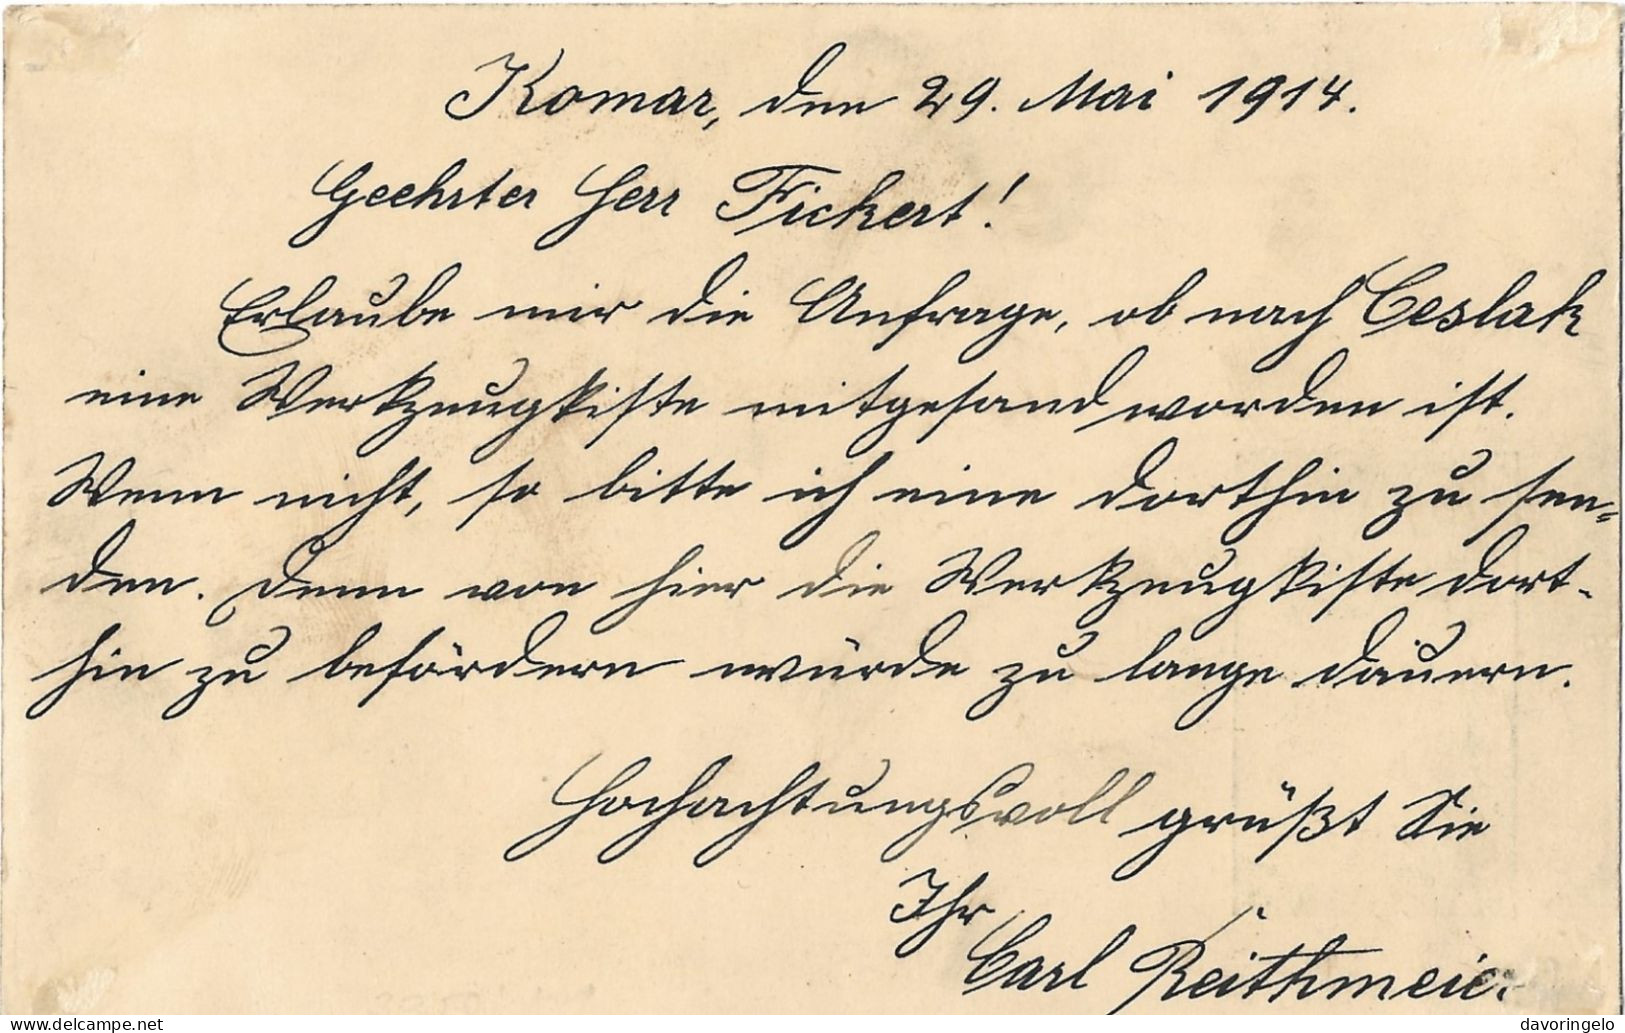 Komar, den 29. Mai 1914.
Geehrter Herr Fickert!
Erlaube mir die Anfrage, ob nach Ceslak
eine Werkzeugkiste mitgesand worden ist.
Wenn nicht, so bitte ich eine dorthin zu sen=
den. Denn von hier die Werkzeugkiste dort-
hin zu befördern würde zu lange dauern.
Hochachtungsvoll grüßt Sie
Ihr
Carl Reithmeier
delcampe.net
davoringelo